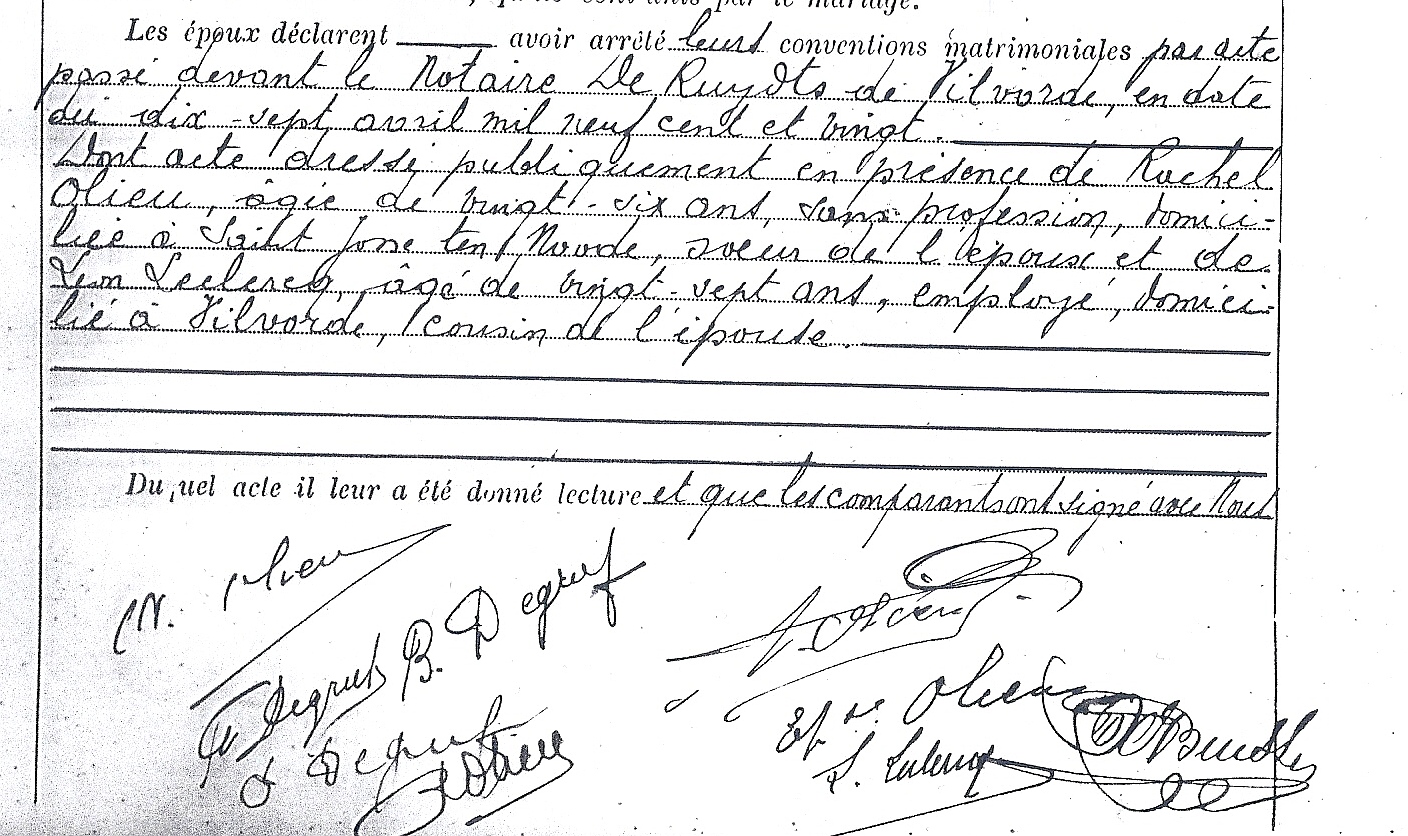 par le mariage.
Les époux déclarent avoir arrêté leurs conventions matrimoniales par acte
passé devant le Notaire De Ruydts de Vilvorde, en date
du dix-sept avril mil neuf cent et vingt.
Dont acte dressé publiquement en présence de Rachel
Olieu, âgée de vingt-six ans, sans profession, domici-
liée à Saint Josse ten Noode, soeur de l'époux et de
Léon Leclercq, âgé de vingt-sept ans, employé, domici-
lié à Vilvorde, cousin de l'épouse.
Du uel acte il leur a été donné lecture et que les comparants ont signé avec Nous
N. Olieu
B. Degruf
Degruf
Olieu
R Olieu
L. Leclercq